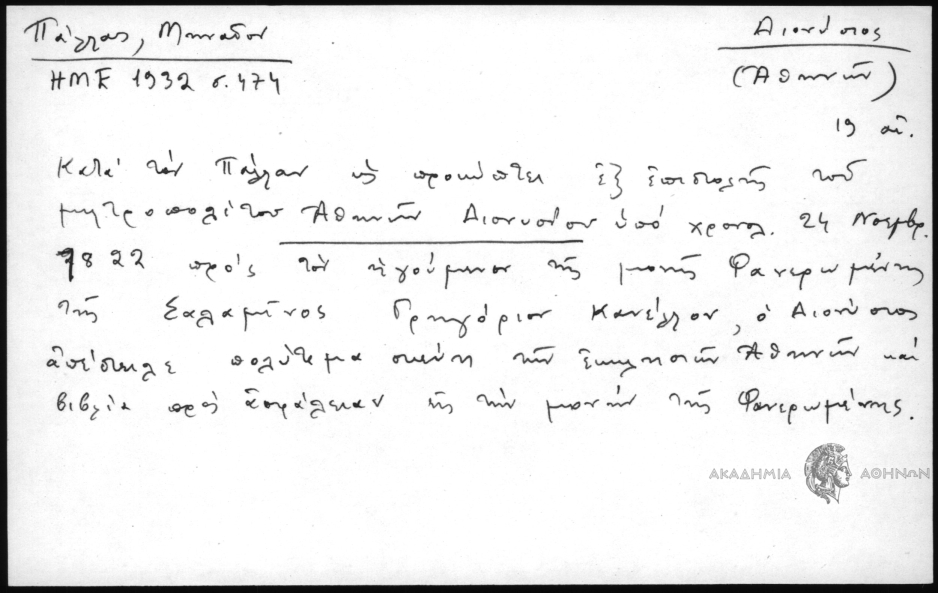 Πάλλας, Μηναδον
Διονύσιος
ΗΜΕ 1932 σ. 474
(Ἀθηνῶν)
19 αἰ.
Κατά τόν Πάλλαν ὡς προκύπτει ἐξ ἐπιστολῆς τοῦ
μητροπολίτου Ἀθηνῶν Διονυσίου ὑπό χρονολ. 24 Νοεμβρ.
1822 πρός τόν ἡγούμενον τῆς μονῆς Φανερωμένης
τῆς Σαλαμῖνος Γρηγόριον Κανέλλον, ὁ Διονύσιος
ἀπέστειλε πολύτιμα σκεύη τῶν ἐκκλησιῶν Ἀθηνῶν καί
βιβλία πρός ἀσφάλειαν εἰς τήν μονήν τῆς Φανερωμένης.
ΑΚΑΔΗΜΙΑ ΑΘΗΝΩΝ